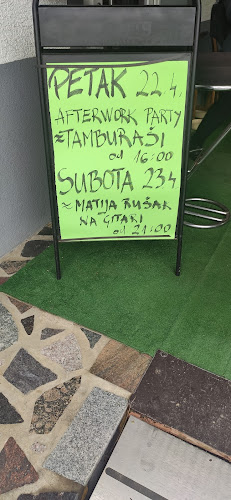 PETAK 22.4.
AFTERWORK PARTY
ž TAMBURAŠI
od 16:00
SUBOTA 23.4
ž MATIJA RUŠAK
NA GITARI
od 21:00